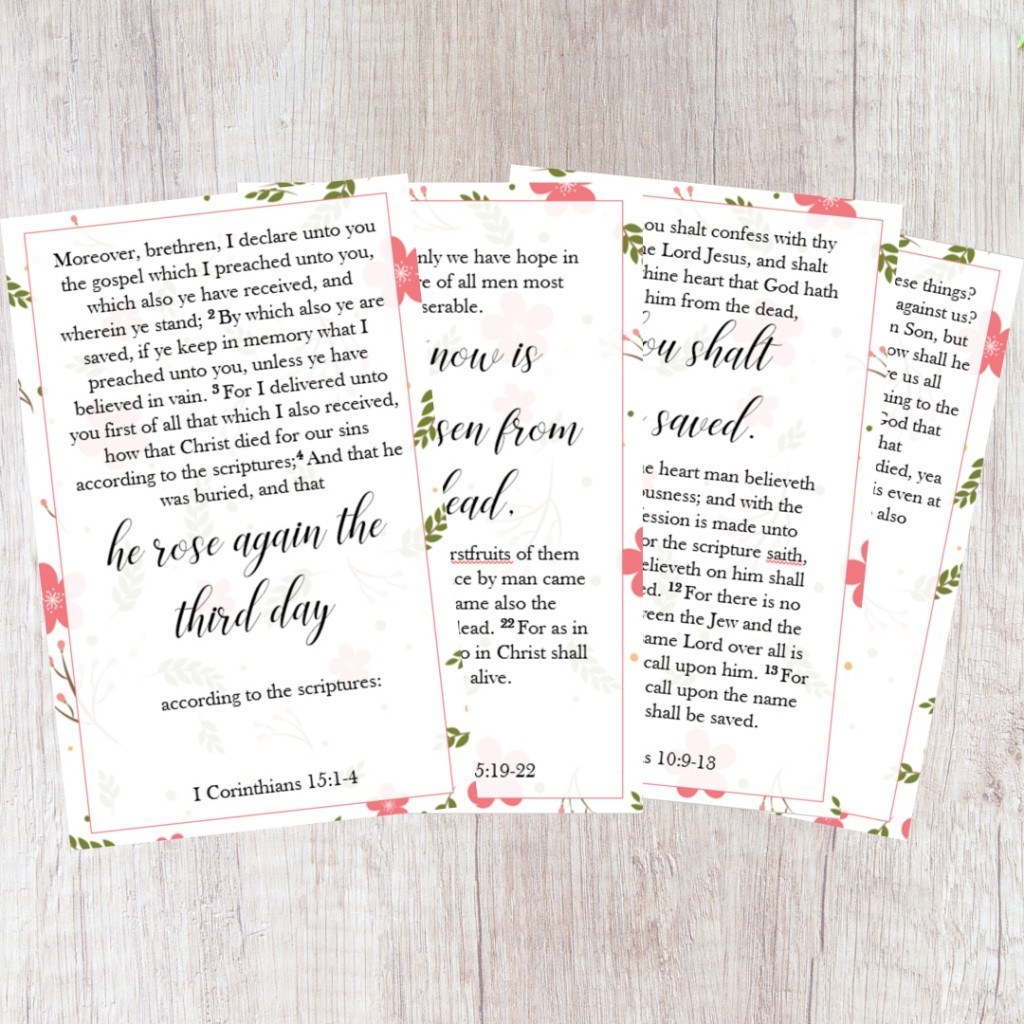 Moreover, brethren, I declare unto you
the gospel which I preached unto you,
which also ye have received, and
wherein ye stand; ²By which also ye are
saved, if ye keep in memory what I
preached unto you, unless ye have
believed in vain. ³For I delivered unto
you first of all that which I also received,
how that Christ died for our sins
according to the scriptures;⁴And that he
was buried, and that
he rose again the
third day
according to the scriptures:
I Corinthians 15:1-4
nly we have hope in
e of all men most
serable.
now is
sen from
ead.
rstfruits of them
ce by man came
ame also the
lead. ²²For as in
o in Christ shall
alive.
5:19-22
ou shalt confess with thy
e Lord Jesus, and shalt
hine heart that God hath
him from the dead,
ou shalt
saved.
e heart man believeth
ousness; and with the
ession is made unto
or the scripture saith,
elieveth on him shall
ed. ¹²For there is no
veen the Jew and the
ame Lord over all is
call upon him. ¹³For
call upon the name
shall be saved.
s 10:9-13
ese things?
against us?
n Son, but
ow shall he
e us all
ning to the
God that
hat
died, yea
is even at
also